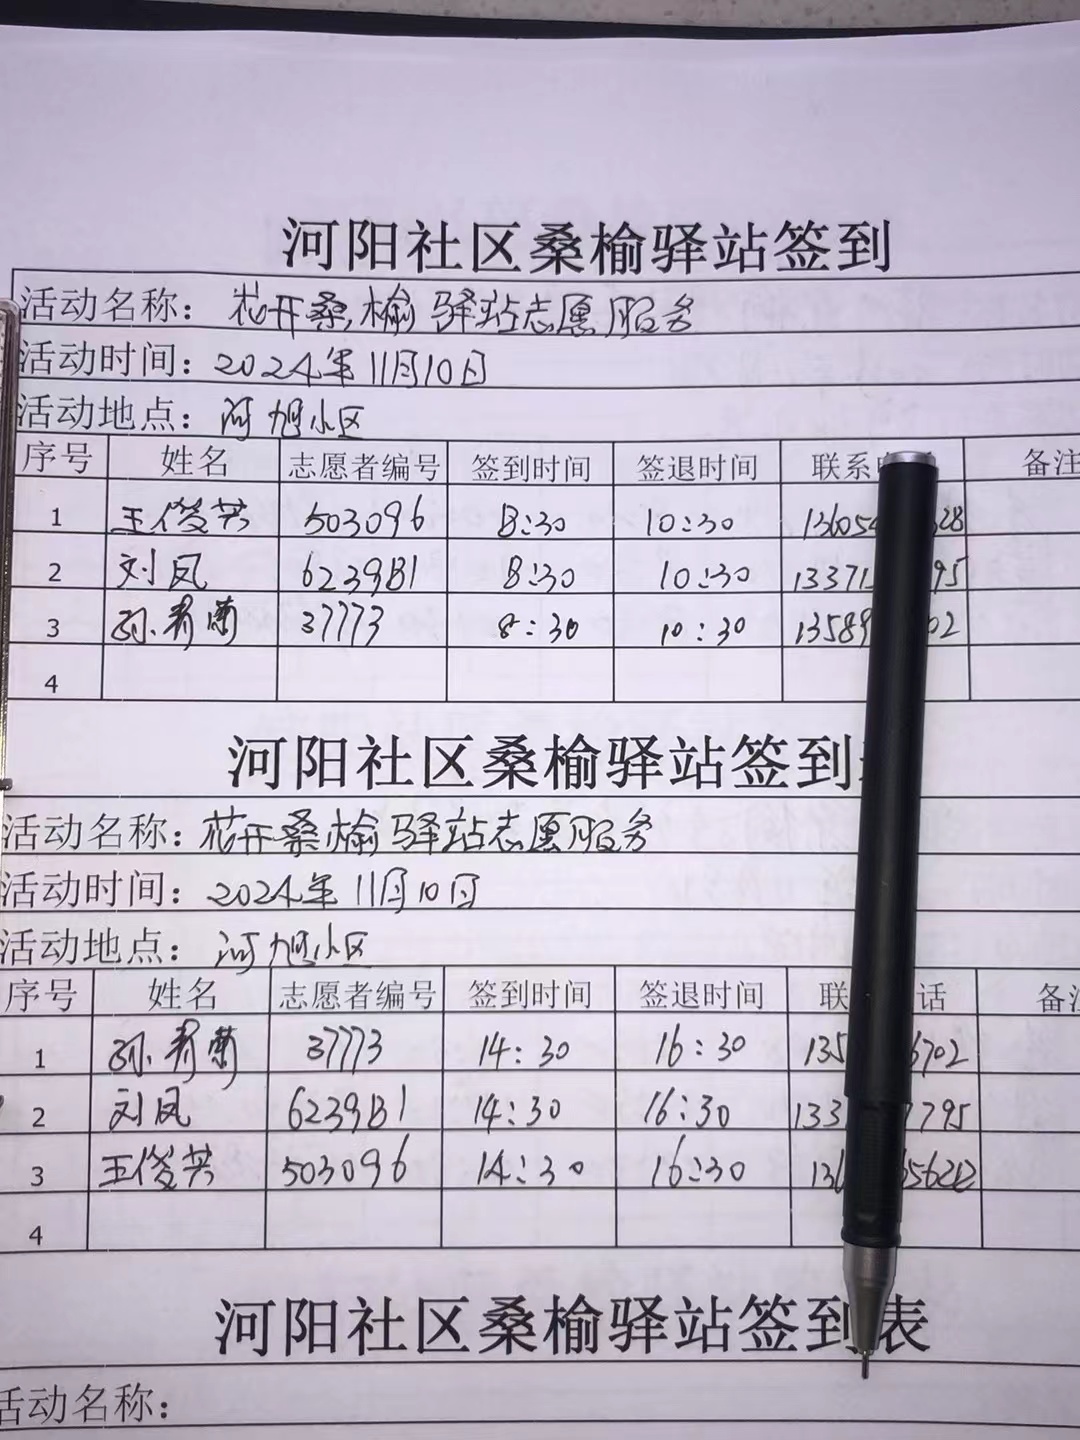 河阳社区桑榆驿站签到
活动名称：花开桑榆驿站志愿服务
活动时间：2024年11月10日
活动地点：河旭小区
序号 姓名 志愿者编号 签到时间 签退时间 联系 备注
1 王俊芳 503096 8:30 10:30 13605 328
2 刘凤 6239B1 8:30 10:30 13371 95
3 孙 37773 8:30 10:30 13589 02
4
河阳社区桑榆驿站签到
活动名称：花开桑榆驿站志愿服务
活动时间：2024年11月10日
活动地点：河旭小区
序号 姓名 志愿者编号 签到时间 签退时间 联 话 备注
1 孙 37773 14:30 16:30 135 6702
2 刘凤 6239B1 14:30 16:30 133 7795
3 王俊芳 503096 14:30 16:30 136
4
河阳社区桑榆驿站签到表
活动名称：